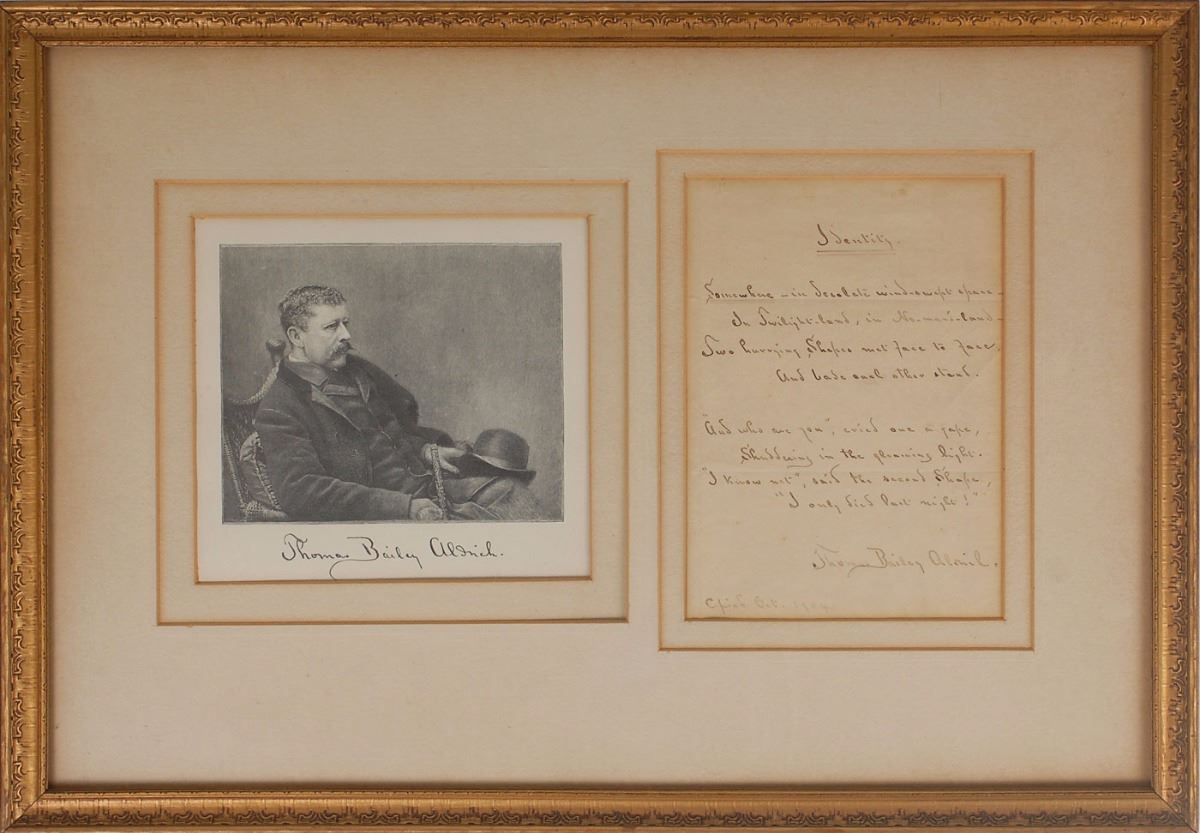 Thomas Bailey Aldrich.
Identity.
Somewhere – in desolate wind-swept space –
In Twilight-land, in No-man's-land –
Two hurrying Shapes met face to face,
And bade each other stand.
"And who are you", cried one a-gape,
Shuddering in the gloaming light.
"I know not", said the second Shape,
"I only died last night!"
Thomas Bailey Aldrich.
Oct. 1904.